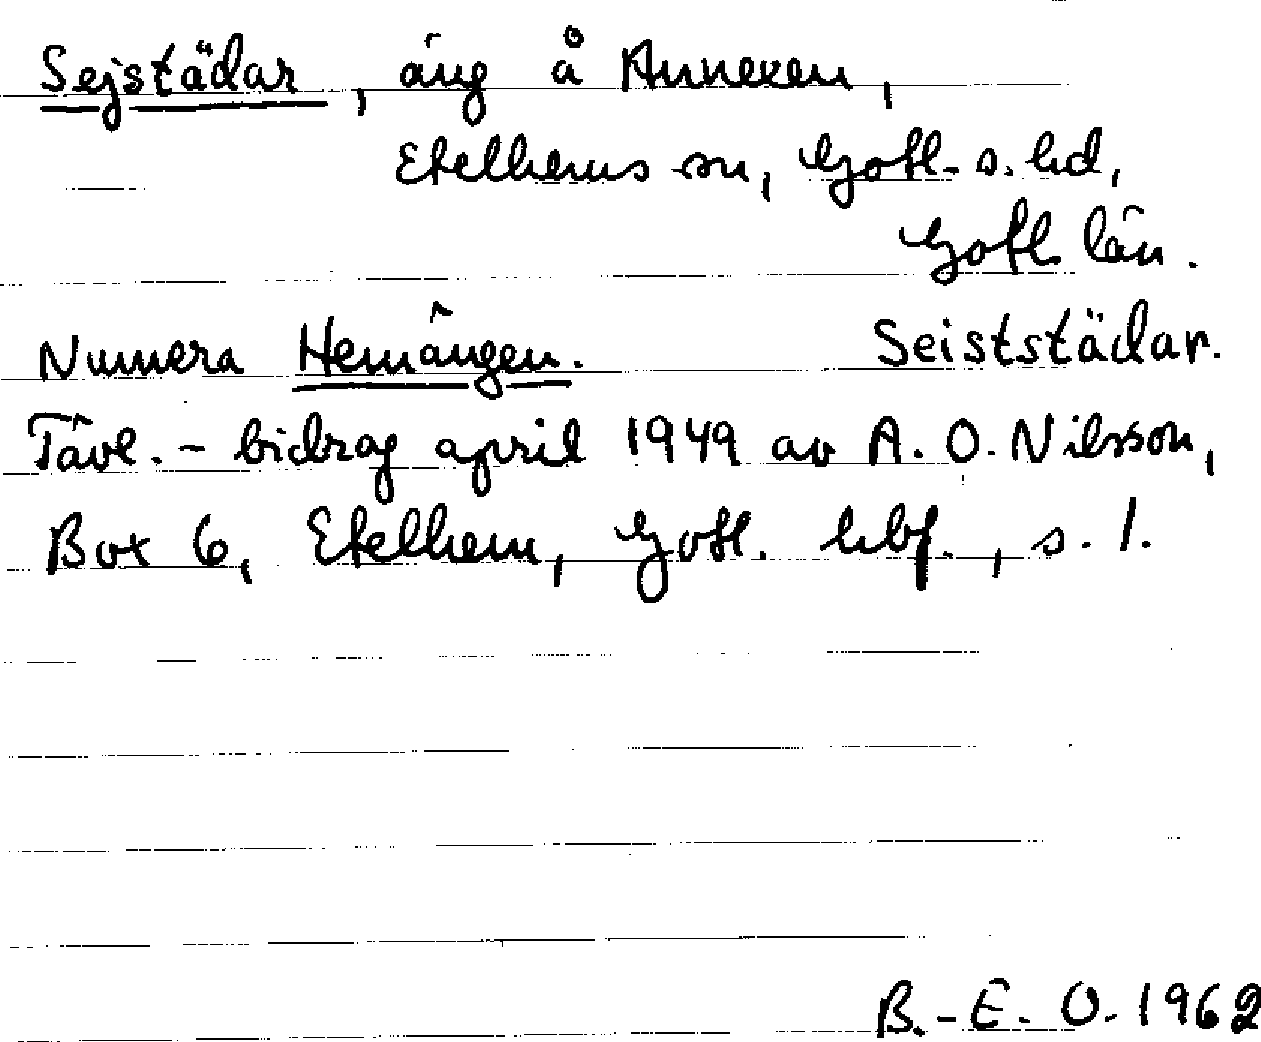 Sejstädar, äng å Annexen,
Etelhems sn, Gotl. s. hd,
Gotl. län.
Numera Hemängen. Seiststädar.
Tävl. - bidrag april 1949 av A. O. Nilsson,
Box 6, Etelhem, Gotl. hbf., s. 1.
B.-E. O. 1962